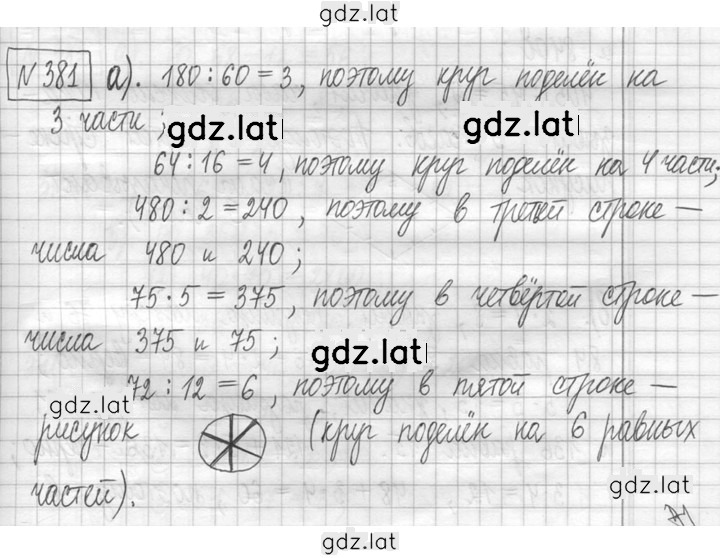 gdz.lat
N 381 а). 180 : 60 = 3, поэтому круг поделён на
3 части;
gdz.lat gdz.lat
64 : 16 = 4, поэтому круг поделён на 4 части;
480 : 2 = 240, поэтому в третей строке —
числа 480 и 240;
75 · 5 = 375, поэтому в четвёртой строке —
числа 375 и 75;
gdz.lat
72 : 12 = 6, поэтому в пятой строке —
gdz.lat
рисунок (круг поделён на 6 равных
частей).
gdz.lat
gdz.lat